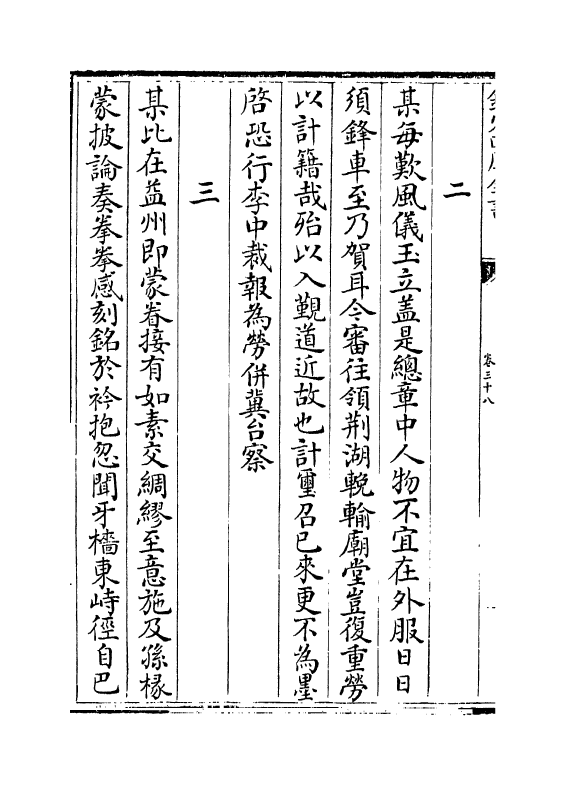 二
某每歎風儀玉立盖是總章中人物不宜在外服日日
須鋒車至乃賀耳今審往領荆湖輓輸廟堂豈復重勞
以計籍哉殆以入覲道近故也計璽召已來更不為墨
啓恐行李中裁報為勞併冀台察
三
某比在益州即蒙眷接有如素交綢繆至意施及孫椽
蒙披論奏拳拳感刻銘於衿抱忽聞牙檣東峙徑自巴
卷三十八